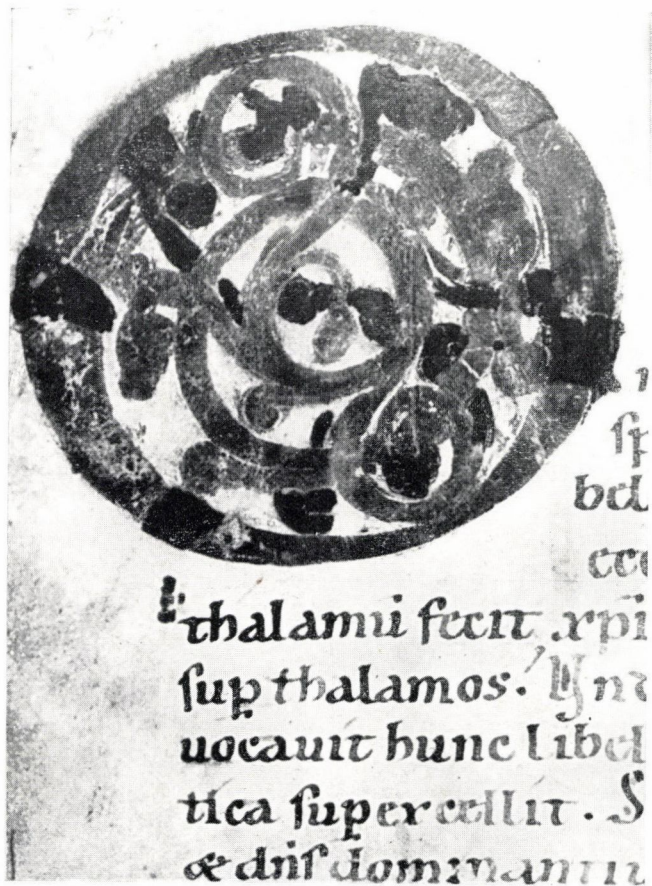 sp
bel
ecc
thalamū fecit xpi
sup thalamos. Int
uocauit hunc libel
tica supercellit. S
& dn̄s dominantiū